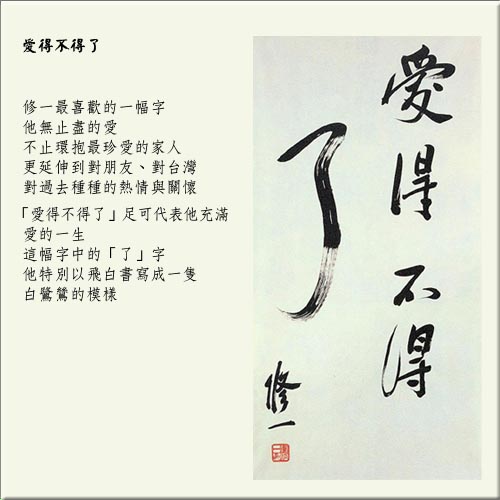 愛得不得了
修一最喜歡的一幅字
他無止盡的愛
不止環抱最珍愛的家人
更延伸到對朋友、對台灣
對過去種種的熱情與關懷
「愛得不得了」足可代表他充滿
愛的一生
這幅字中的「了」字
他特別以飛白書寫成一隻
白鷺鷥的模樣
愛得不得
了
修一